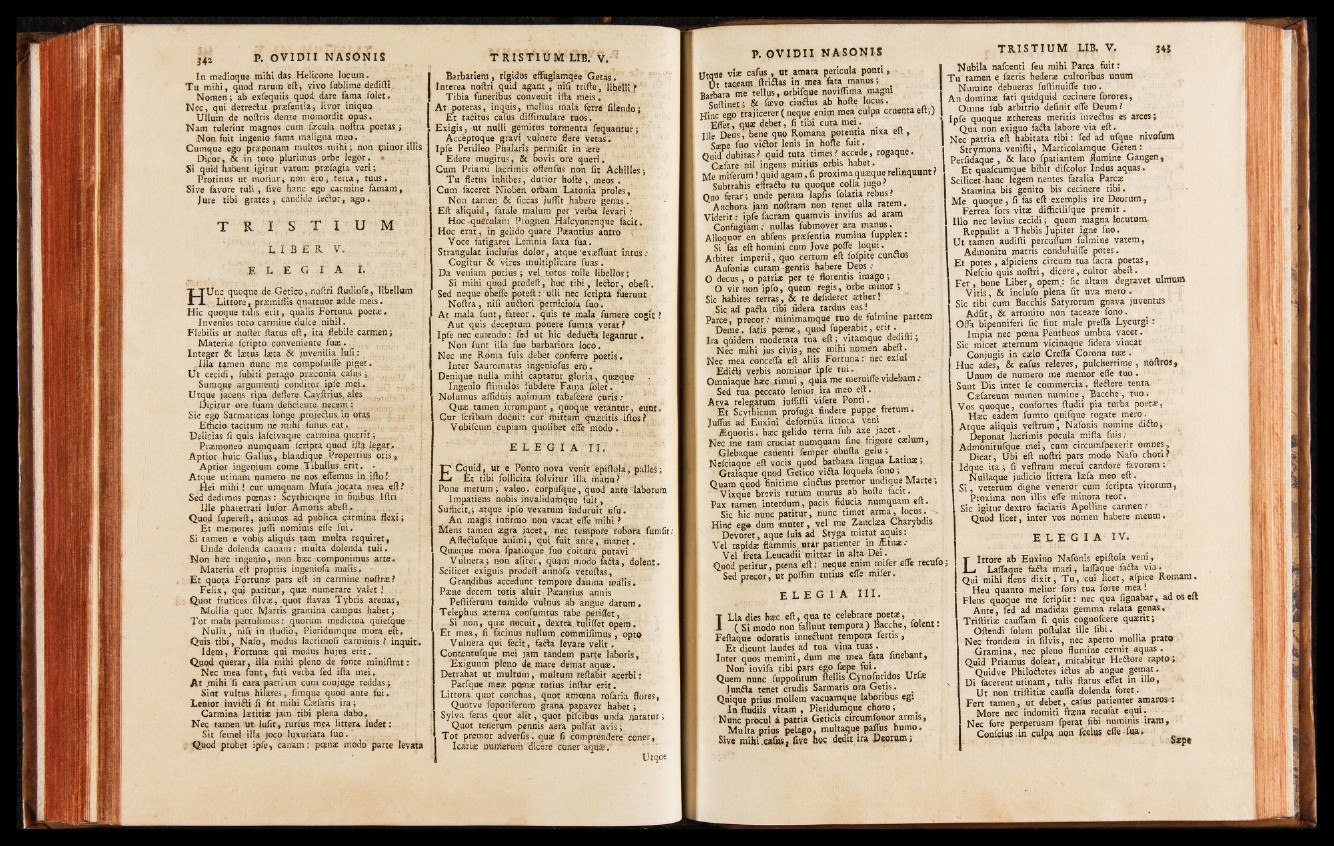 342 P. OVIDII NASONIS
In medioque mihi das Helicone locum.
Tu mihi, quod rarum est, vivo sublime dedisti
Nomen; ab exsequiis quod dare fama solet.
Nec, qui detrectat præsentia, livor iniquo
Ullum de nostris dente momordit opus.
Nam tulerint magnos cum sæcula nostra poetas;
Non fuit ingenio fama maligna meo.
Cumque ego præponam multos mihi; non minor illis
Dicor, & in toto plurimus orbe legor.
Si quid habent igitur vatum præsagia veri;
Protinus ut moriar, non ero, terra, tuus.
Sive favore tuli, sive hanc ego carmine famam,
Jure tibi grates, candide lector, ago.
TRISTIUM
LIBER V.
ELEGIA I.
HUnc quoque de Getico, nostri studiose, libellum
Littore, præmissis quattuor adde meis.
Hic quoque talis erit, qualis Fortuna poetæ.
Invenies toto carmine dulce nihil.
Flebilis ut noster status est, ita flebile carmen;
Materiæ scripto conveniente suæ.
Integer & lætus læta & juvenilia lusi:
Illa tamen nunc me composuisse piget.
Ut cecidi, subiti perago præconia casus;
Sumque argumenti conditor ipse mei.
Utque jacens ripa deflere Caystrius ales
Dicitur ore suam deficiente necem:
Sic ego Sarmaticas longe projectus in oras
Efficio tacitum ne mihi funus eat.
Delicias si quis lascivaque carmina quærit;
Præmoneo numquam scripta quod ista legat.
Aptior huic Gallus, blandique Propertius oris,
Aptior ingenium come Tibullus erit.
Atque utinam numero ne nos essemus in isto!
Hei mihi! cur umquam Musa jocata mea est?
Sed dedimus pœnas: Scythicique in finibus Istri
Ille pharetrati lusor Amoris abest.
Quod superest, animos ad publica carmina flexi;
Et memores jussi nominis esse sui.
Si tamen e vobis aliquis tam multa requiret,
Unde dolenda canam: multa dolenda tuli.
Non hæc ingenio, non hæc componimus arte.
Materia est propriis ingeniosa malis.
Et quota Fortunæ pars est in carmine nostræ?
Felix, qui patitur, quæ numerare valet!
Quot frutices silvæ, quot flavas Tybris arenas,
Mollia quot Martis gramina campus habet;
Tot mala pertulimus: quorum medicina quiesque
Nulla, nisi in studio, Pieridumque mora est.
Quis tibi, Naso, modus lacrimosi carminis? inquit.
Idem, Fortunæ qui modus hujus erit.
Quod querar, illa mihi pleno de fonte ministrat:
Nec mea sunt, fati verba sed ista mei.
At mihi si cara patriam cum conjuge reddas;
Sint vultus hilares, simque quod ante fui.
Lenior invicti si fit mihi Cæsaris ira;
Carmina lætitiæ jam tibi plena dabo.
Nec tamen ut lusit, rursus mea littera ludet:
Sit semel illa joco luxuriata suo.
Quod probet ipse, canam: pœnæ modo parte levata
TRISTIUM LIB. V.
Barbariem, rigidos effugiamque Getas.
Interea nostri quid agant, nisi triste, libelli?
Tibia funeribus convenit ista meis.
At poteras, inquis, melius mala ferre silendo;
Et tacitus casus dissimulare tuos.
Exigis, ut nulli gemitus tormenta sequantur;
Acceptoque gravi vulnere flere vetas.
Ipse Perilleo Phalaris permisit in ære
Edere mugitus, & bovis ore queri.
Cum Priami lacrimis offensus non sit Achilles;
Tu fletus inhibes, durior hoste, meos.
Cum faceret Nioben orbam Latonia proles,
Non tamen & siccas jussit habere genas.
Est aliquid, fatale malum per verba levari:
Hoc querulam Prognen Halcyonenque facit.
Hoc erat, in gelido quare Pæantius antro
Voce fatigaret Lemnia saxa sua.
Strangulat inclusus dolor, atque exæstuat intus:
Cogitur & vires multiplicare suas.
Da veniam potius; vel totos tolle libellos;
Si mihi quod prodest, hoc tibi, lector, obest.
Sed neque obesse potest: ulli nec scripta fuerunt
Nostra, nisi auctori perniciosa suo.
At mala sunt, fateor. quis te mala sumere cogit?
Aut quis deceptum ponere sumta vetat?
Ipse nec emendo: sed ut hic deducta legantur.
Non sunt illa suo barbariora loco.
Nec me Roma suis debet conferre poetis.
Inter Sauromatas ingeniosus ero.
Denique nulla mihi captatur gloria, quæque
Ingenio stimulos subdere Fama solet.
Nolumus assiduis animum tabescere curis:
Quæ tamen irrumpunt, quoque vetantur, eunt.
Cur scribam docui: cur mittam quæritis istos?
Vobiscum cupiam quolibet esse modo.
ELEGIA II.
ECquid, ut e Ponto nova venit epistola, palles;
Et tibi sollicita solvitur illa manu?
Pone metum; valeo. corpusque, quod ante laborum
Impatiens nobis invalidumque fuit,
Sufficit, atque ipso vexatum induruit usu.
An magis infirmo non vacat esse mihi?
Mens tamen ægra jacet, nec tempore robora sumsit:
Affectusque animi, qui fuit ante, manet.
Quæque mora spatioque suo coitura putavi
Vulnera; non aliter, quam modo facta, dolent.
Scilicet exiguis prodest annosa vetustas,
Grandibus accedunt tempore damna malis.
Pæne decem totis aluit Pæantius annis
Pestiferum tumido vulnus ab angue datum.
Telephus æterna consumtus tabe periisset,
Si non, quæ nocuit, dextra tulisset opem.
Et mea, si facinus nullum commisimus, opto
Vulnera qui fecit, facta levare velit.
Contentusque mei jam tandem parte laboris,
Exiguum pleno de mare demat aquæ.
Detrahat ut multum, multum restabit acerbi:
Parsque meæ pœnæ totius instar erit.
Littora quot conchas, quot amœna rosaria flores,
Quotve soporiferum grana papaver habet;
Sylva feras quot alit, quot piscibus unda natatur;
Quot tenerum pennis aera pulsat avis;
Tot premor adversis. quæ si comprendere coner,
Icariæ numerum dicere coner aquæ.
Utque
P. OVIDII NASONIS
Utque viæ casus, ut amara pericula ponti,
Ut taceam strictas in mea fata manus;
Barbara me tellus, orbisque novissima magni
Sustinet; & sævo cinctus ab hoste locus.
Hinc ego trajicerer (neque enim mea culpa cruenta est;)
Esset, quæ debet, si tibi cura mei.
Ille Deus, bene quo Romana potentia nixa est,
Sæpe suo victor lenis in hoste fuit.
Quid dubitas? quid tuta times? accede, rogaque.
Cæsare nil ingens mitius orbis habet.
Me miserum! quid agam, si proxima quæque relinquunt?
Subtrahis effracto tu quoque colla jugo?
Quo ferar; unde petam lapsis solatia rebus?
Anchora jam nostram non tenet ulla ratem.
Viderit: ipse sacram quamvis invisus ad aram
Confugiam: nullas submovet ara manus.
Alloquor en absens præsentia numina supplex:
Si fas est homini cum Jove posse loqui.
Arbiter imperii, quo certum est sospite cunctos
Ausoniæ curam gentis habere Deos:
O decus, o patriæ per te florentis imago;
O vir non ipso, quem regis, orbe minor;
Sic habites terras, & te desideret æther!
Sic ad pacta tibi sidera tardus eas!
Parce, precor: minimamque tuo de fulmine partem
Deme. satis pœnæ, quod superabit, erit.
Ira quidem moderata tua est; vitamque dedisti;
Nec mihi jus civis, nec mihi nomen abest.
Nec mea concessa est aliis Fortuna: nec exsul
Edicti verbis nominor ipse tui.
Omniaque hæc timui, quia me meruisse videbam:
Sed tua peccato lenior ira meo est.
Arva relegatum jussisti visere Ponti.
Et Scythicum profuga findere puppe fretum.
Jussus ad Euxini deformia littora veni
Æquoris. hæc gelido terra sub axe jacet.
Nec me tam cruciat numquam sine frigore cælum,
Glebaque canenti semper obusta gelu;
Nesciaque est vocis quod barbara lingua Latinæ;
Graiaque quod Getico victa loquela sono;
Quam quod finitimo cinctus premor undique Marte;
Vixque brevis tutum murus ab hoste facit.
Pax tamen interdum, pacis fiducia numquam est.
Sic hic nunc patitur, nunc timet arma, locus.
Hinc ego dum muter, vel me Zanclæa Charybdis
Devoret, aque suis ad Styga mittat aquis:
Vel rapidæ flammis urar patienter in Ætnæ:
Vel freta Leucadii mittar in alta Dei.
Quod petitur, pœna est: neque enim miser esse recuso;
Sed precor, ut possim tutius esse miser.
ELEGIA III.
ILla dies hæc est, qua te celebrare poetæ,
(Si modo non fallunt tempora) Bacche, solent:
Festaque odoratis innectunt tempora sertis,
Et dicunt laudes ad tua vina tuas.
Inter quos memini, dum me mea fata sinebant,
Non invisa tibi pars ego sæpe fui.
Quem nunc suppositum stellis Cynosuridos Ursæ
Juncta tenet crudis Sarmatis ora Getis.
Quique prius mollem vacuamque laboribus egi
In studiis vitam, Pieridumque choro;
Nunc procul a patria Geticis circumsonor armis,
Multa prius pelago, multaque passus humo.
Sive mihi casus, sive hoc dedit ira Deorum;
TRISTIUM LIB. V. 343
Nubila nascenti seu mihi Parca fuit:
Tu tamen e sacris hederæ cultoribus unum
Numine debueras sustinuisse tuo.
An dominæ fati quidquid cecinere sorores,
Omne sub arbitrio desinit esse Deum?
Ipse quoque æthereas meritis invectus es arces;
Qua non exiguo facta labore via est.
Nec patria est habitata tibi: sed ad usque nivosum
Strymona venisti, Marticolamque Geten:
Persidaque, & lato spatiantem flumine Gangen,
Et quascumque bibit discolor Indus aquas.
Scilicet hanc legem nentes fatalia Parcæ
Stamina bis genito bis cecinere tibi.
Me quoque, si fas est exemplis ire Deorum,
Ferrea sors vitæ difficilisque premit.
Illo nec levius cecidi; quem magna locutum
Reppulit a Thebis Jupiter igne suo.
Ut tamen audisti percussum fulmine vatem,
Admonitu matris condoluisse potes.
Et potes, aspiciens circum tua sacra poetas,
Nescio quis nostri, dicere, cultor abest.
Fer, bone Liber, opem: sic altam degravet ulmum
Vitis, & incluso plena sit uva mero.
Sic tibi cum Bacchis Satyrorum gnava juventus
Adsit, & attonito non taceare sono.
Ossa bipenniferi sic sint male pressa Lycurgi:
Impia nec pœna Pentheos umbra vacet.
Sic micet æternum vicinaque sidera vincat
Conjugis in cælo Cressa Corona tuæ.
Huc ades, & casus releves, pulcherrime, nostros,
Unum de numero me memor esse tuo.
Sunt Dis inter se commercia. flectere tenta
Cæsareum numen numine, Bacche, tuo.
Vos quoque, consortes studii pia turba poetæ,
Hæc eadem sumto quisque rogate mero.
Atque aliquis vestrum, Nasonis nomine dicto,
Deponat lacrimis pocula mista suis:
Admonitusque mei, cum circumspexerit omnes,
Dicat, Ubi est nostri pars modo Naso chori?
Idque ita; si vestrum merui candore favorem:
Nullaque judicio littera læsa meo est.
Si, veterum digne veneror cum scripta virorum,
Proxima non illis esse minora reor.
Sic igitur dextro faciatis Apolline carmen:
Quod licet, inter vos nomen habete meum.
ELEGIA IV.
LIttore ab Euxino Nasonis epistola veni,
Lassaque facta mari, lassaque facta via.
Qui mihi flens dixit, Tu, cui licet, aspice Romam.
Heu quanto melior sors tua sorte mea!
Flens quoque me scripsit: nec qua signabar, ad os est
Ante, sed ad madidas gemma relata genas.
Tristitiæ caussam si quis cognoscere quærit;
Ostendi solem postulat ille sibi.
Nec frondem in silvis, nec aperto mollia prato
Gramina, nec pleno flumine cernit aquas.
Quid Priamus doleat, mirabitur Hectore rapto;
Quidve Philoctetes ictus ab angue gemat.
Di facerent utinam, talis status esset in illo,
Ut non tristitiæ caussa dolenda foret.
Fert tamen, ut debet, casus patienter amaros:
More nec indomiti fræna recusat equi.
Nec fore perpetuam sperat sibi numinis iram,
Conscius in culpa non scelus esse sua.
Sæpe